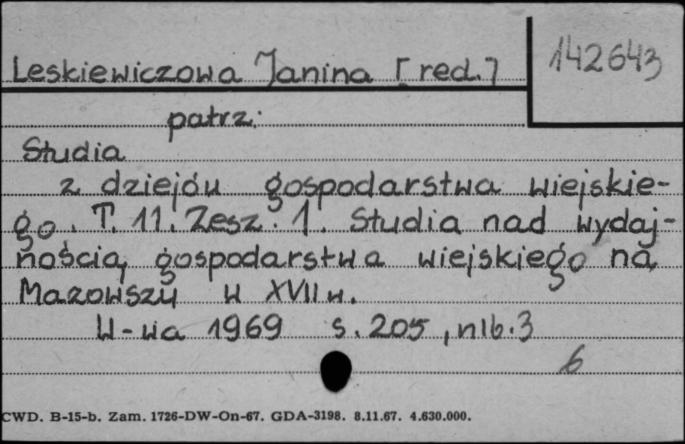 142643
Leskiewiczowa Janina [red.]
patrz:
Studia
z dziejów gospodarstwa wiejskie-
go. T. 11. Zesz. 1. Studia nad wydaj-
nością gospodarstwa wiejskiego na
Mazowszu w XVII w.
W-wa 1969 s. 205, nlb. 3
6
CWD. B-15-b. Zam. 1726-DW-On-67. GDA-3198. 8.11.67. 4.630.000.